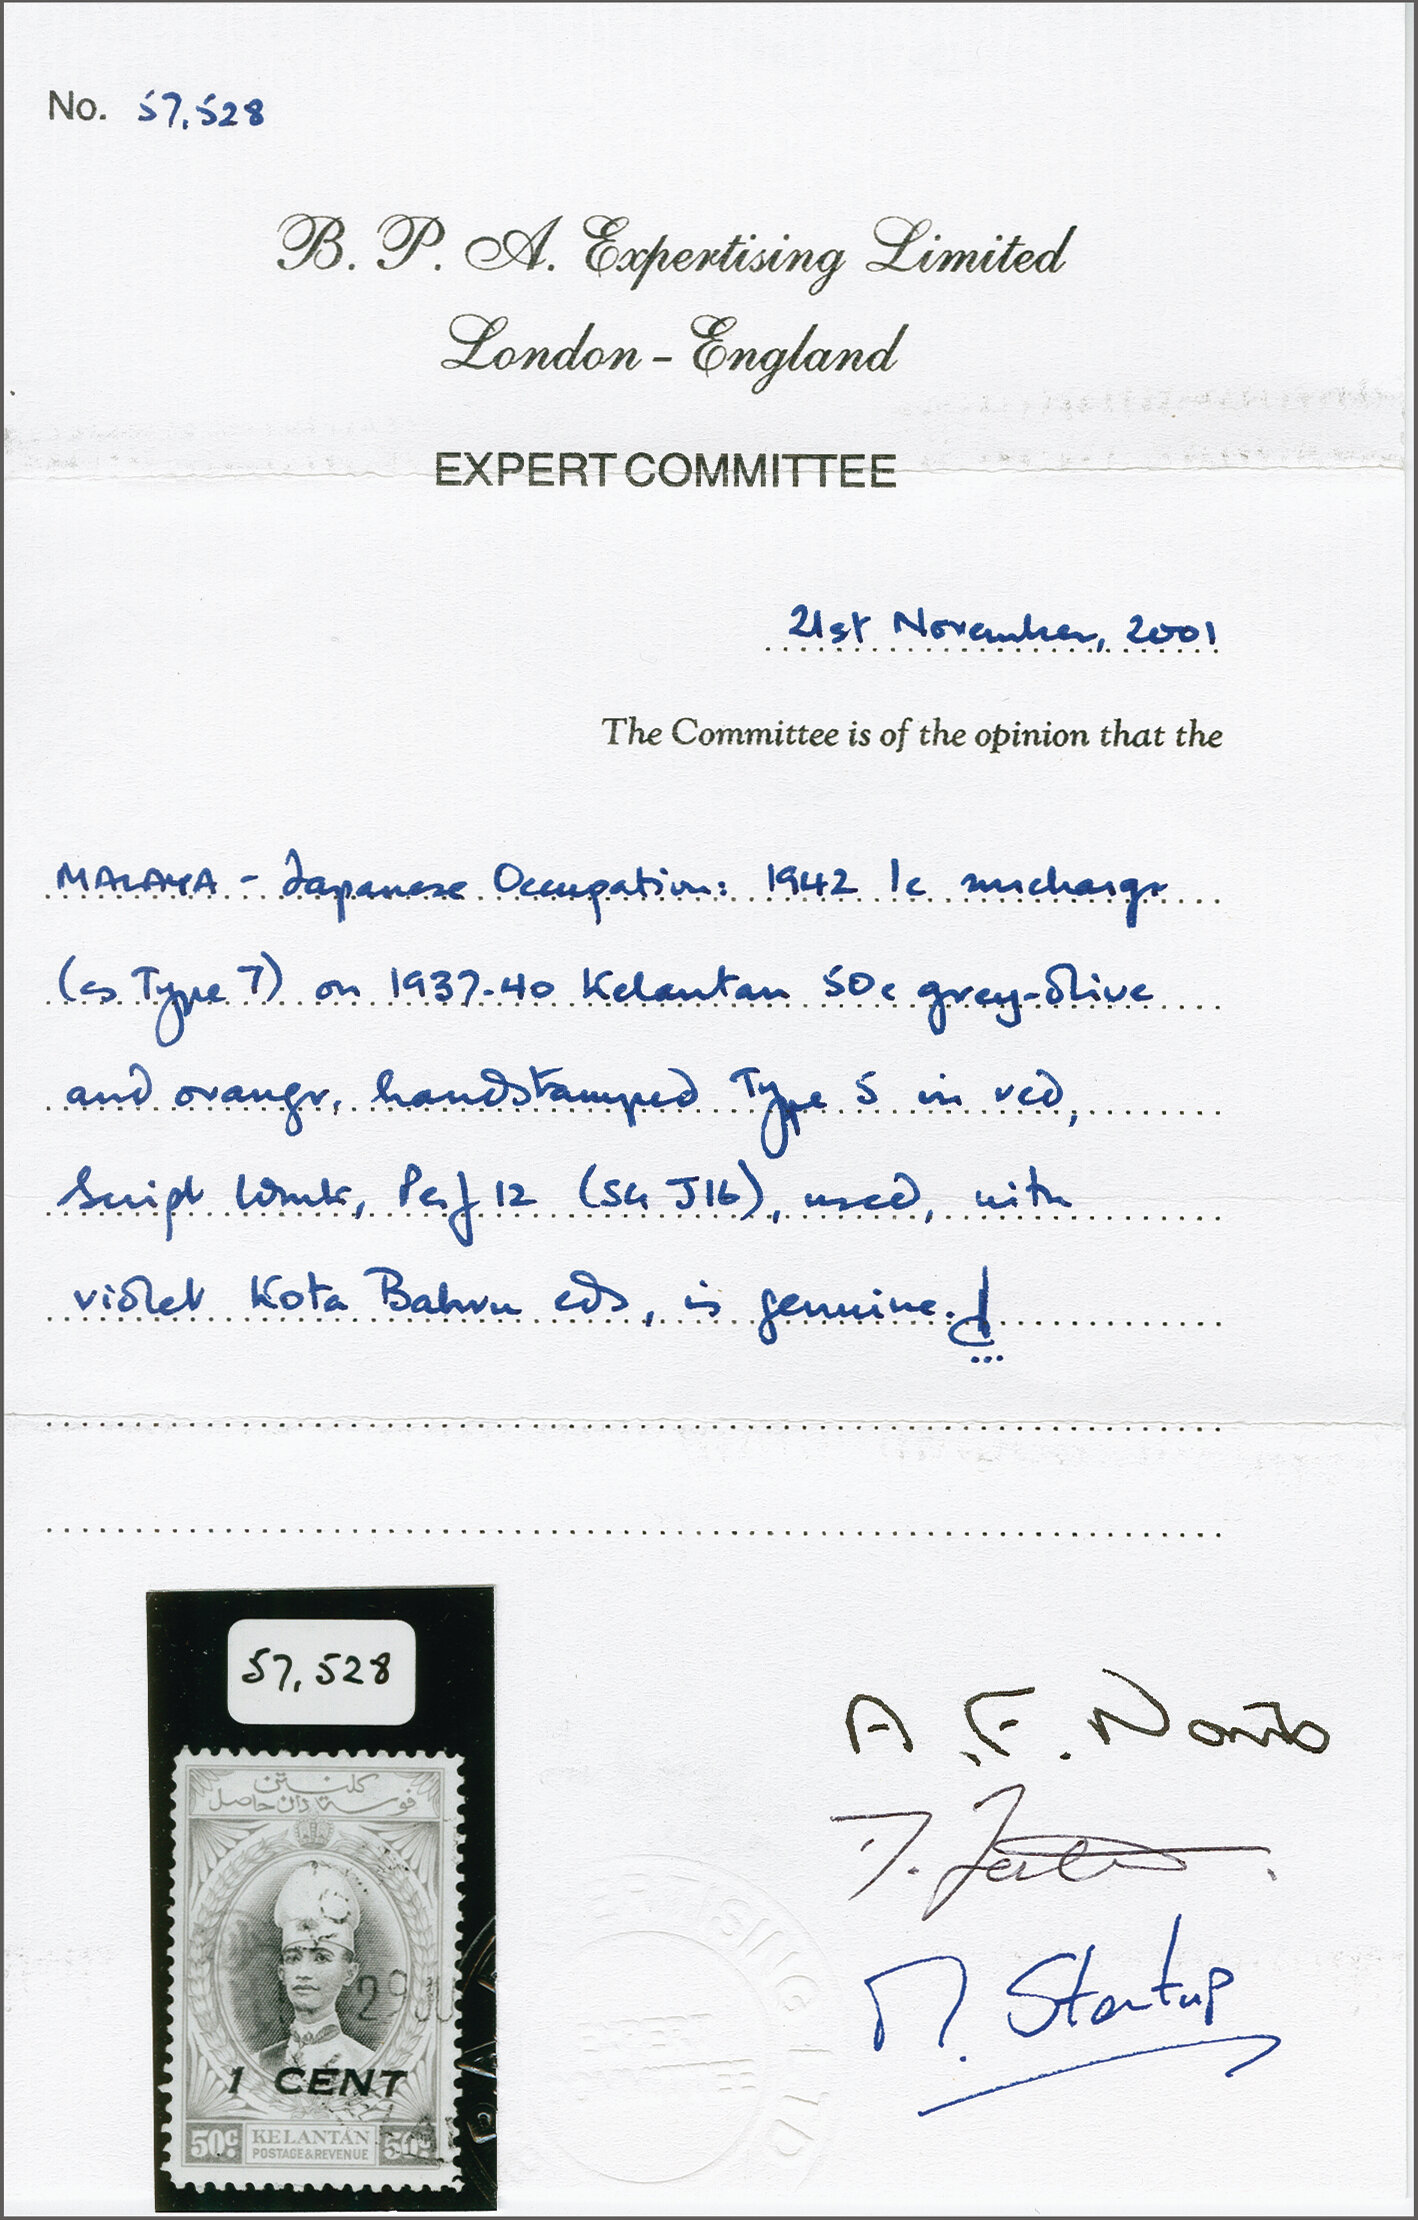 No. 57,528
B. P. A. Expertising Limited
London - England
EXPERT COMMITTEE
21st November, 2001
The Committee is of the opinion that the
MALAYA - Japanese Occupation: 1942 1c surcharge
(as Type 7) on 1937-40 Kelantan 50c grey-olive
and orange, handstamped Type 5 in red,
Script Wmk, Perf 12 (SG J16), used, with
violet Kota Bahru cds, is genuine.
57,528
كلنتن
فوست دان حاصل
29 JU
1 CENT
50c KELANTAN 50c
POSTAGE & REVENUE
A. F. Norris
M. Startup
EXPERTISING LTD
EXPERT
COMMITTEE